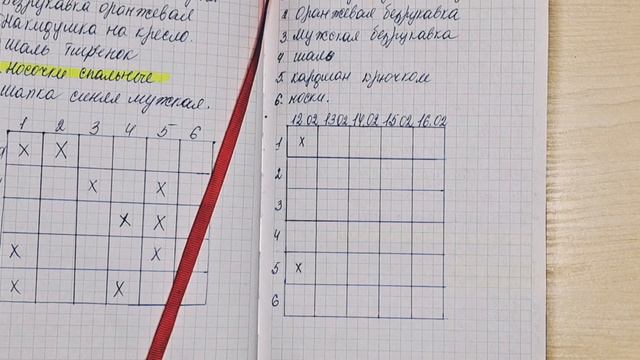 Безрукавка оранжевая
Накидушка на кресло.
Шаль тиренок
Носочки спальные
Шапка синяя мужская.
1 2 3 4 5 6
X X
X X
X X
X X
X X
2 Оранжевая безрукавка
3 Мужская безрукавка
4 шаль
5. кардиган крючком
6. носки.
12.02 13.02 14.02 15.02 16.02
1 X
2
3
4
5 X
6